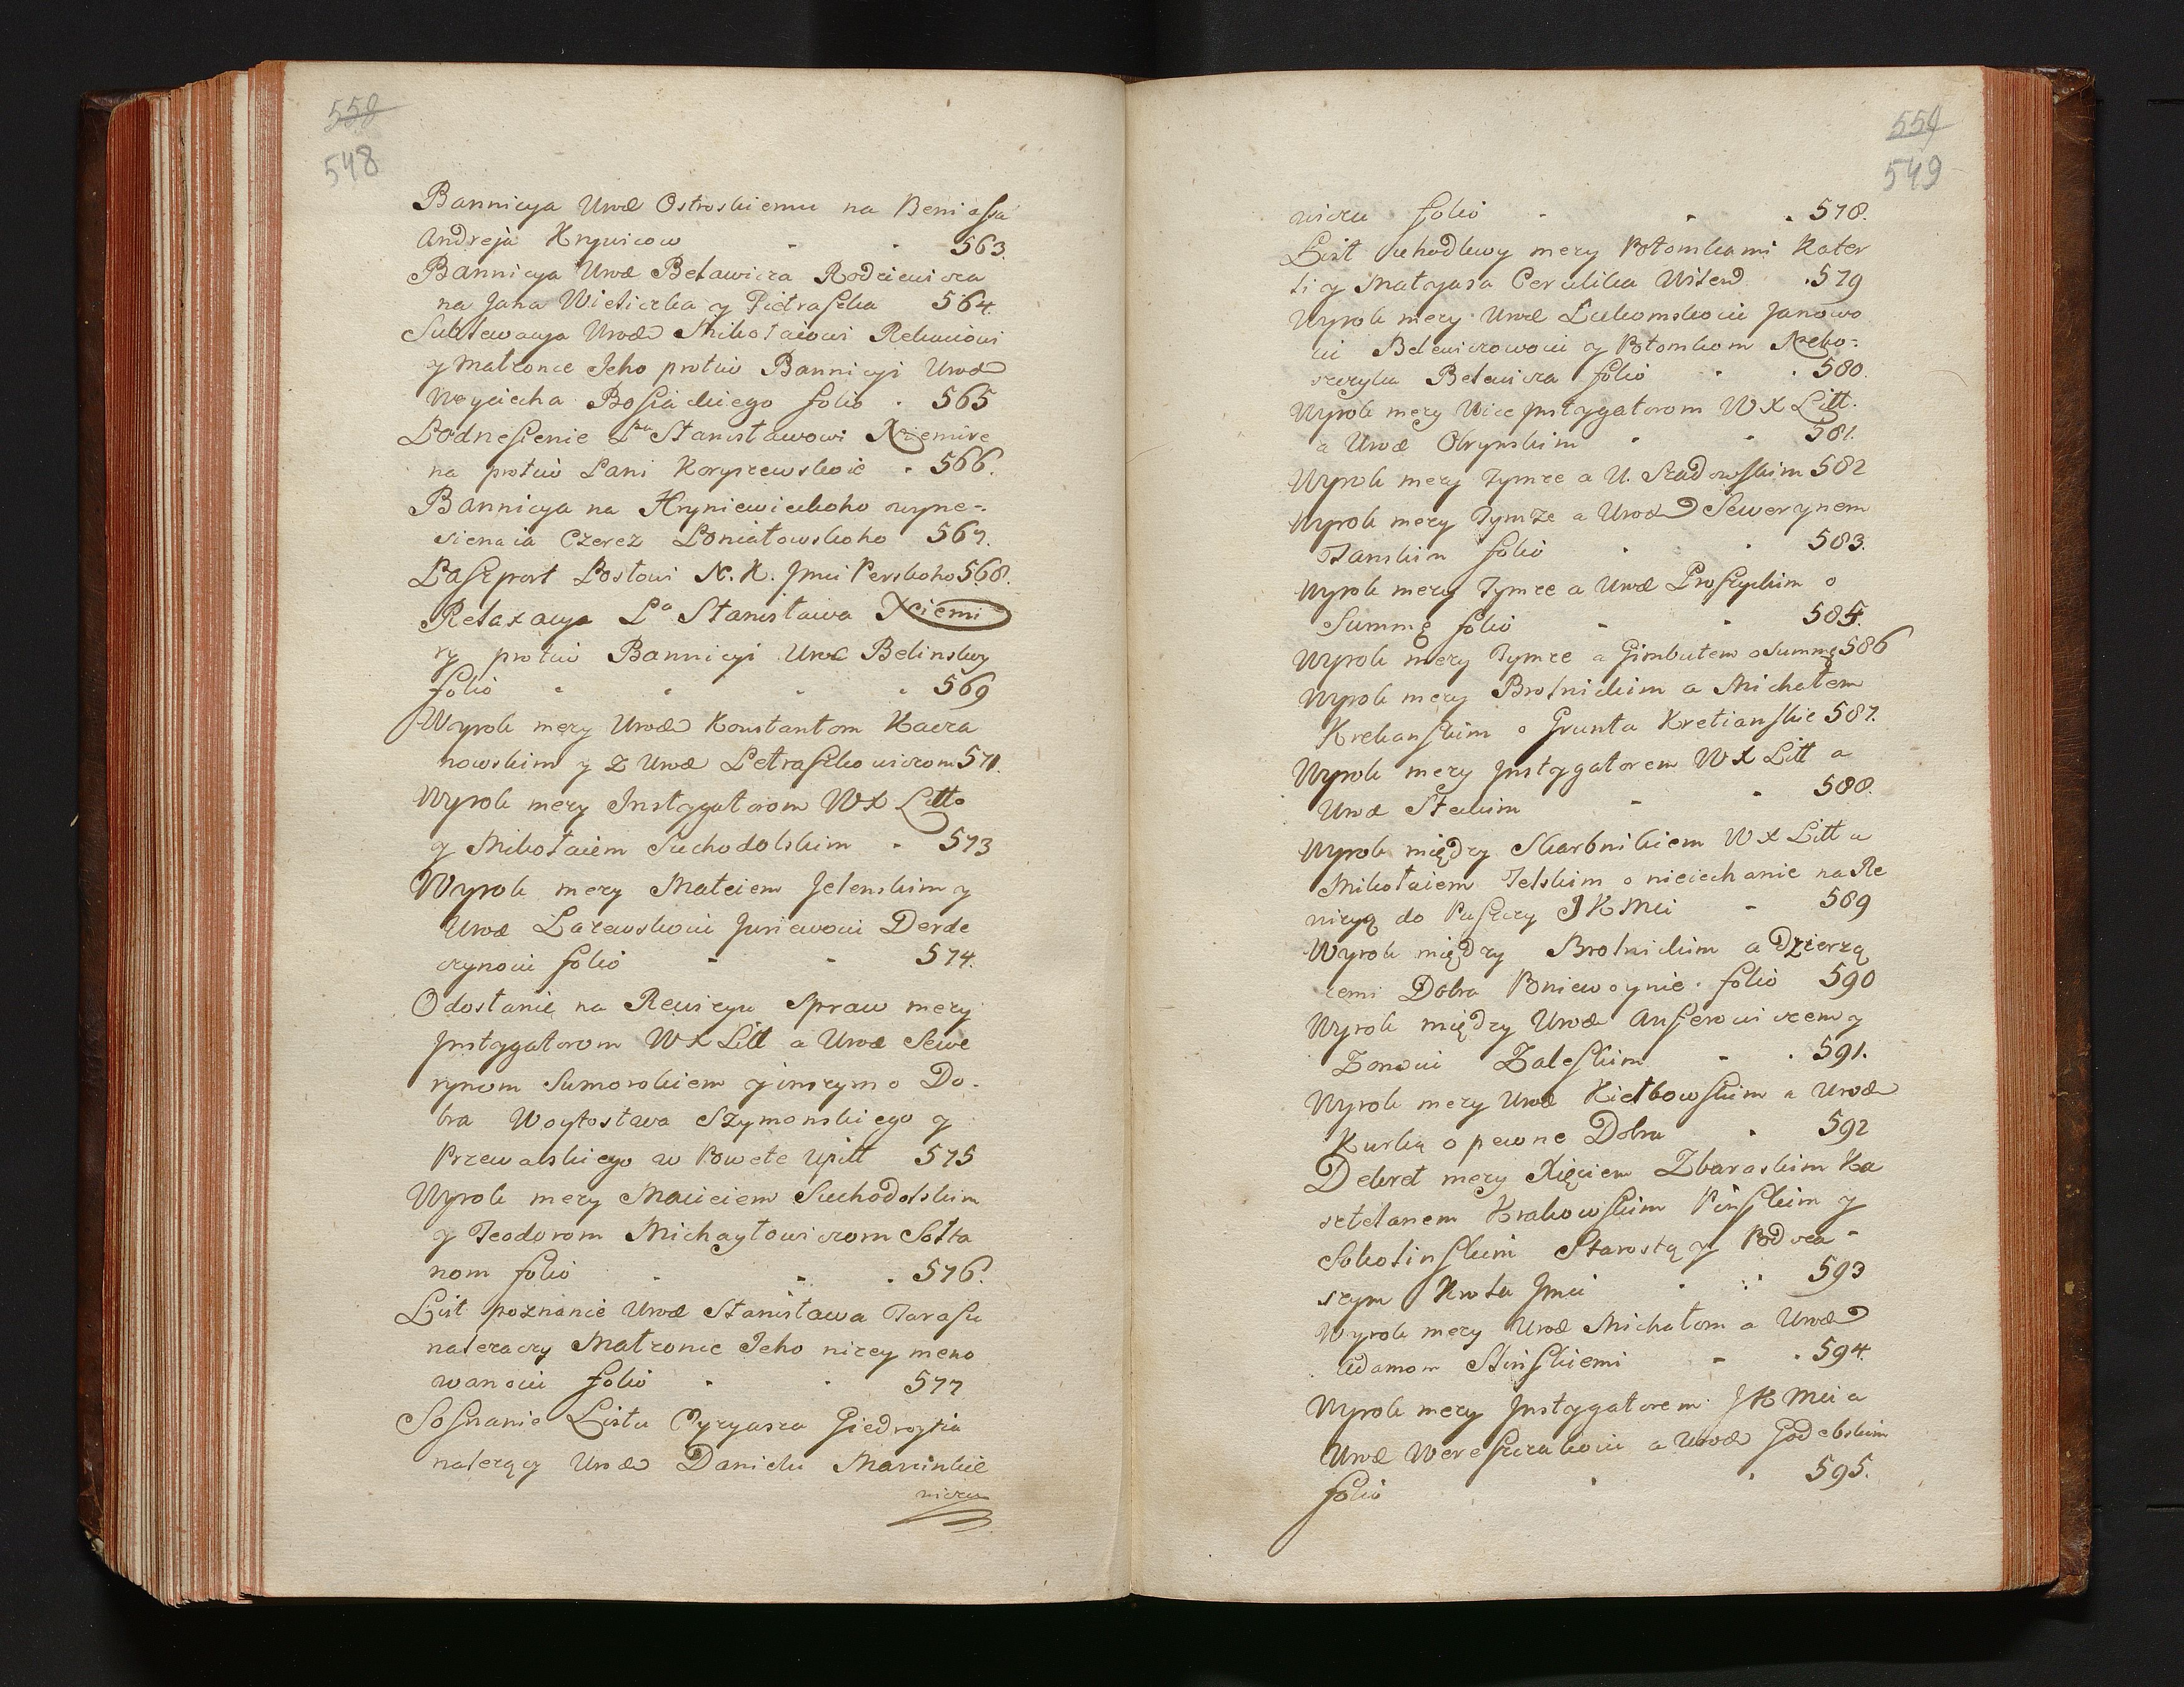 550
548
Bannicya Urod Ostroskiemu na Beniasza
Andreja Krywicow 563.
Bannicya Urod Belawicza Rodziewicza
na Jana Wieliczka y Pietraszka 564.
Sublewacya Urod Mikołaiowi Rekuciowi
y Małżonce Jeho protiw Bannicyi Urod
Woyciecha Bosiackiego folio 565
Podnesienie Pa Stanisławowi Xciemire
na protiw Pani Koryszewskoie 566.
Bannicya na Hryniewieckoho wyne=
sienaia Czerez Poniatowskoho 567.
Paszport Posłowi K. Jmci Perskoho 568.
Relaxacya Pa Stanisława Xciemi
ry protiw Bannicyi Urod Belinskoy
folio 569
Wyrok mezy Urod Konstantom Kacza
nowskim y z Urod Petraszkowiczom 571.
Wyrok mezy Instygatorom WX Litto
y Mikołaiem Suchodolskim 573
Wyrok mezy Mateiem Jelenskim y
Urod Łazewskoiu Juriewoiu Derde
czynoiu folio 574.
Odosłanie na Rewizyu Spraw mezy
Instygatorom WX Litt a Urod Sewe
rynom Sumorokiem y inszym o Do-
bra Woytostwa Szymonskiego y
Przewalskiego w Powete Upitt 575
Wyrok mezy Maciciem Suchodolskim
y Teodorom Michayłowiczom Sołta
nom folio 576.
List poznanie Urod Stanisława Tarasu
należaczy Małżonce Jeho nizey meno
wanoiu folio 577
Soznanie Listu Cyryasza Giedroytia
należący Urod Danielu Marcinkie
wiczu
551
549
wiczu folio 578.
List uhodliwy mezy Potomkami Kater
li y Matyasa Cerulika Wilend 579
Wyrok mezy Urod Lukomskoiu Janowo
iu Belewiczowoiu y Potomkom Krzko=
szczyka Belewicza folio 580.
Wyrok mezy Vice Instygatorom WX Litt.
a Urod Obrynskim 581.
Wyrok mezy Tymze a U. Szadowskim 582
Wyrok mezy Tymze a Urod Sewerynem
Tanskim folio 583.
Wyrok mezy Tymze a Urod Proszyckim o
Summę folio 585.
Wyrok mezy Tymze a Gimbutem o Summę 586
Wyrok mezy Brolnickim a Michałem
Krekanskim o Grunta Kretianskie 587.
Wyrok mezy Instygatorem WX Litt a
Urod Steckim 588.
Wyrok między Skarbnikiem WX Litt a
Mikołaiem Jelskim o nieiechanie na Re
wizyą do Puszczy JKMci 589
Wyrok między Brolnickim a Dzierzą
cemi Dobra Poniewoynie. folio 590
Wyrok między Urod Anforowiczem y
Żonoiu Zaleskim 591.
Wyrok mezy Urod Kiełbowskim a Urod
Kurką o pewne Dobra 592
Dekret mezy Xięciem Zbaraskim Ka
sztelanem Krakowskim Pinskim y
Sokolinskim Starostą y Podcza-
szym Krola Jmci 593
Wyrok mezy Urod Michałom a Urod
Adamom Stinskiemi 594.
Wyrok mezy Instygatorem JKMci a
Urod Wereszczakoiu a Urod Godebskim
folio 595.